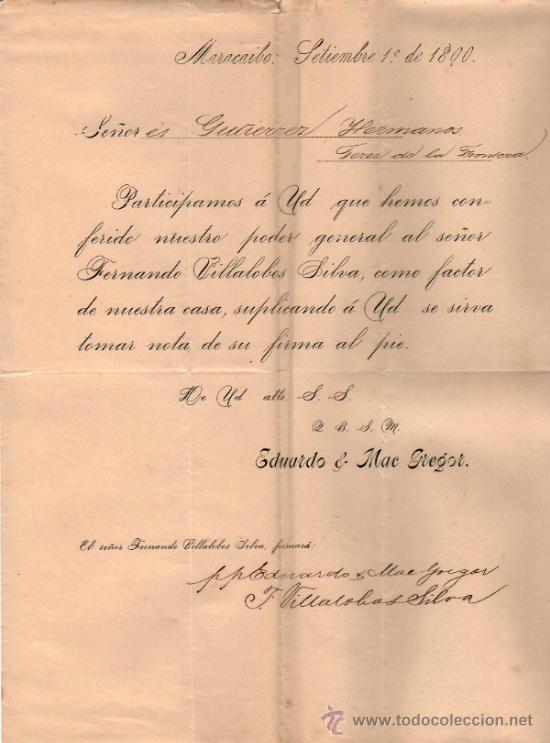 Maracaibo: Setiembre 1º de 1890.
Señor es Gutierrez Hermanos
Jerez de la Frontera
Participamos á Ud que hemos con-
ferido nuestro poder general al señor
Fernando Villalobos Silva, como factor
de nuestra casa, suplicando á Ud se sirva
tomar nota de su firma al pie.
De Ud atts. S. S.
Q. B. S. M.
Eduardo & Mac Gregor.
El señor Fernando Villalobos Silva, firmará:
pp Eduardo & Mac Gregor
F. Villalobos Silva
todocoleccion
www.todocoleccion.net